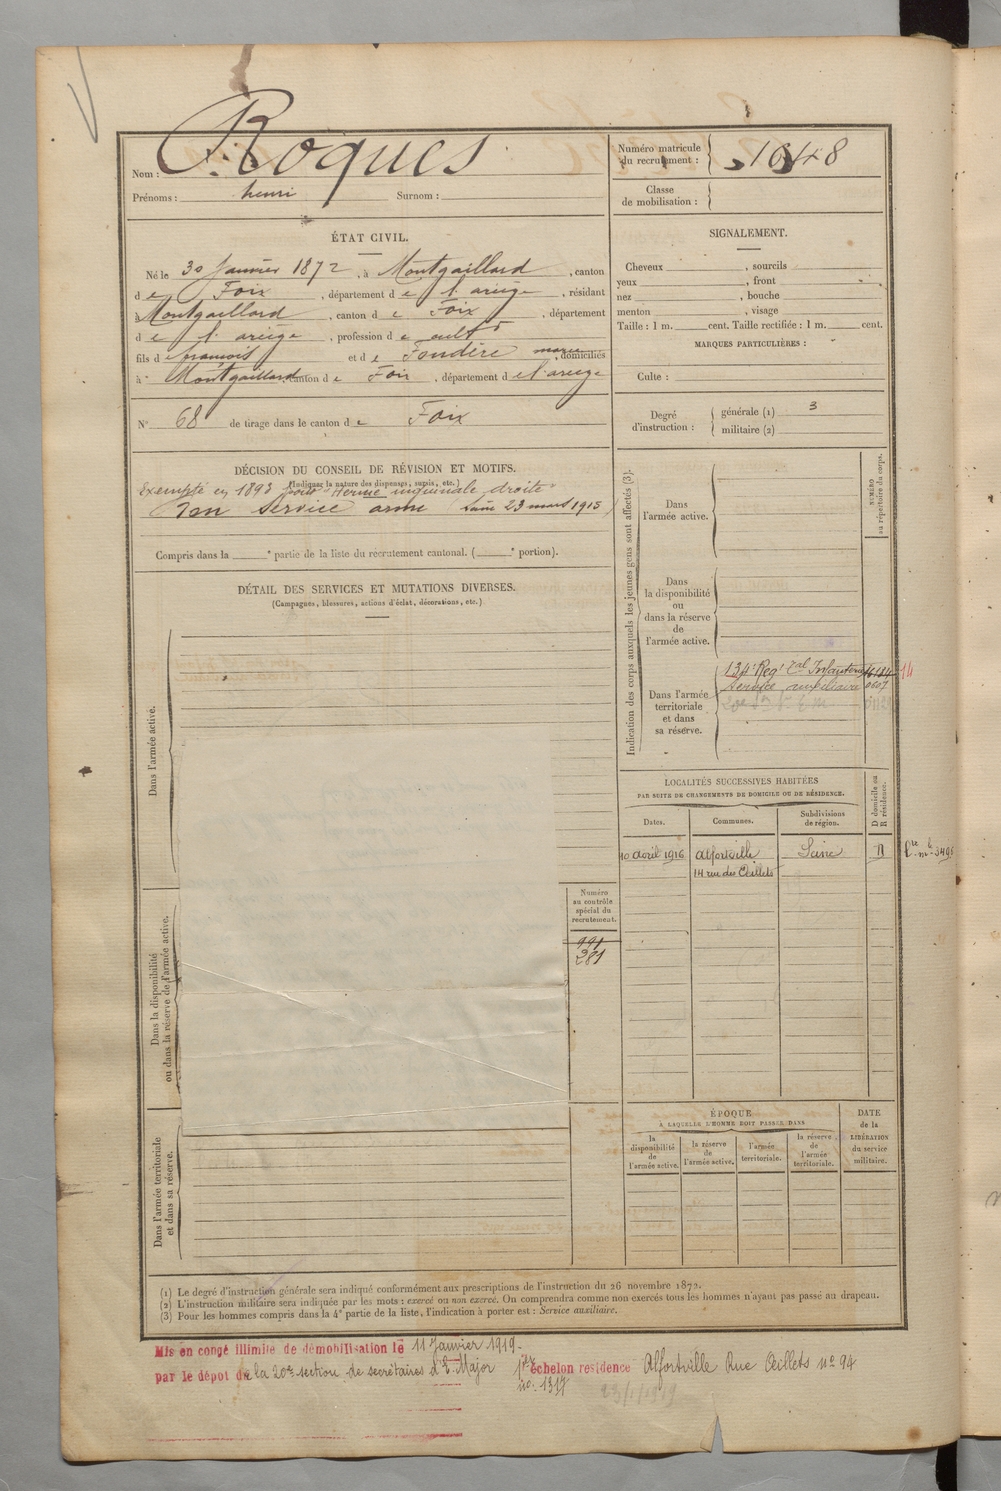 Nom : Roques
Prénoms : henri Surnom :
Numéro matricule
du recrutement : 1648
Classe
de mobilisation :
ÉTAT CIVIL.
Né le 30 Janvier 1872, à Montgaillard, canton
de Foix, département de l'ariège, résidant
à Montgaillard, canton de Foix, département
de l'ariège, profession de cult
fils de françois et de Fondère marie domiciliés
à Montgaillard canton de Foix, département de l'ariège
N° 68 de tirage dans le canton de Foix
DÉCISION DU CONSEIL DE RÉVISION ET MOTIFS.
(Indiquer la nature des dispenses, sursis, etc.)
Exempté en 1893 pour Hernie inguinale droite
Bon service armé 23 mars 1915
Compris dans la e partie de la liste du recrutement cantonal. ( e portion).
DÉTAIL DES SERVICES ET MUTATIONS DIVERSES.
(Campagnes, blessures, actions d'éclat, décorations, etc.)
Dans l'armée active.
Dans la disponibilité
ou dans la réserve de l'armée active.
Dans l'armée territoriale
et dans sa réserve.
Numéro
au contrôle
spécial du
recrutement.
991
281
SIGNALEMENT.
Cheveux , sourcils
yeux , front
nez , bouche
menton , visage
Taille : 1 m. cent. Taille rectifiée : 1 m. cent.
MARQUES PARTICULIÈRES :
Culte :
Degré
d'instruction :
générale (1) 3
militaire (2)
Indication des corps auxquels les jeunes gens sont affectés (3).
NUMÉRO
au répertoire du corps.
Dans
l'armée active.
Dans
la disponibilité
ou
dans la réserve
de
l'armée active.
Dans l'armée
territoriale
et dans
sa réserve.
134e Regt tal Infanterie 16184 14
Service auxiliaire
20e S
LOCALITÉS SUCCESSIVES HABITÉES
PAR SUITE DE CHANGEMENTS DE DOMICILE OU DE RÉSIDENCE.
D domicile ou
R résidence.
Dates. Communes. Subdivisions
de région.
10 avril 1916 Alfortville Seine R
14 rue des Œillets
ÉPOQUE
À LAQUELLE L'HOMME DOIT PASSER DANS
la
disponibilité
de
l'armée active.
la réserve
de
l'armée active.
l'armée
territoriale.
la réserve
de
l'armée
territoriale.
DATE
de la
LIBÉRATION
du service
militaire.
(1) Le degré d'instruction générale sera indiqué conformément aux prescriptions de l'instruction du 26 novembre 1872.
(2) L'instruction militaire sera indiquée par les mots : exercé ou non exercé. On comprendra comme non exercés tous les hommes n'ayant pas passé au drapeau.
(3) Pour les hommes compris dans la 4e partie de la liste, l'indication à porter est : Service auxiliaire.
Mis en congé illimité de démobilisation le 11 Janvier 1919.
par le dépot de la 20e section de secrétaires d'E. Major 1er échelon résidence Alfortville Rue Œillets no 94
no. 1317
23/1/1919